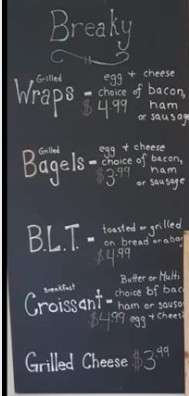 Breaky
Grilled
Wraps - egg + cheese
choice of bacon,
$4.99 ham
or sausage
Grilled
Bagels - egg + cheese
choice of bacon,
$3.99 ham
or sausage
B.L.T. - toasted or grilled
on bread or
$4.99
Breakfast
Croissant - Butter or Multi
choice of
ham or
$4.99 egg +
Grilled Cheese $3.99